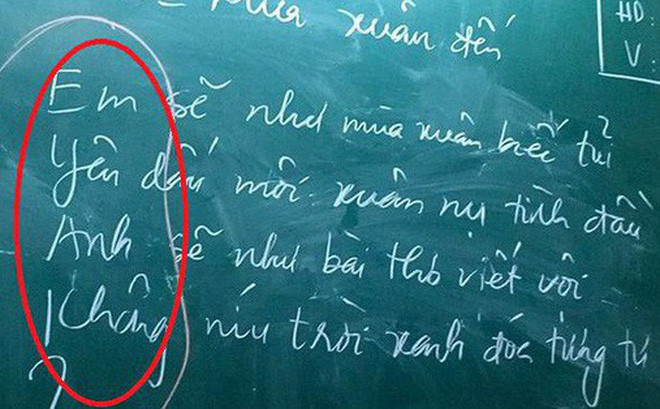 Mùa xuân đến
HD:
V:
Em sẽ như mùa xuân biếc tủ
Yên dấu môi xuân nụ tình đầu
Anh sẽ như bài thơ viết vội
Không níu trời xanh đóa từng tứ
?